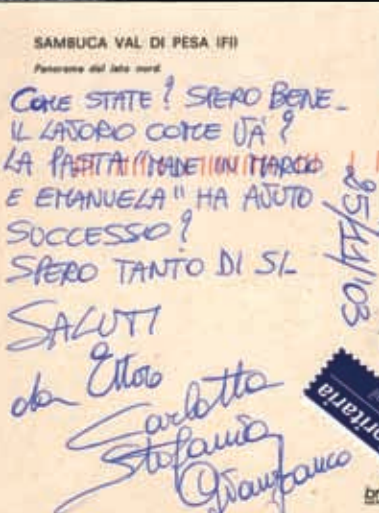 SAMBUCA VAL DI PESA (FI)
Panorama dal lato nord
COME STATE? SPERO BENE_
IL LAVORO COME VÀ?
LA PASTA "MADE IN MARCO
E EMANUELA" HA AVUTO
SUCCESSO?
SPERO TANTO DI SI_
SALUTI
da Ettore
Carlotta
Stefania
Gianfranco
25/11/'03
oritaria